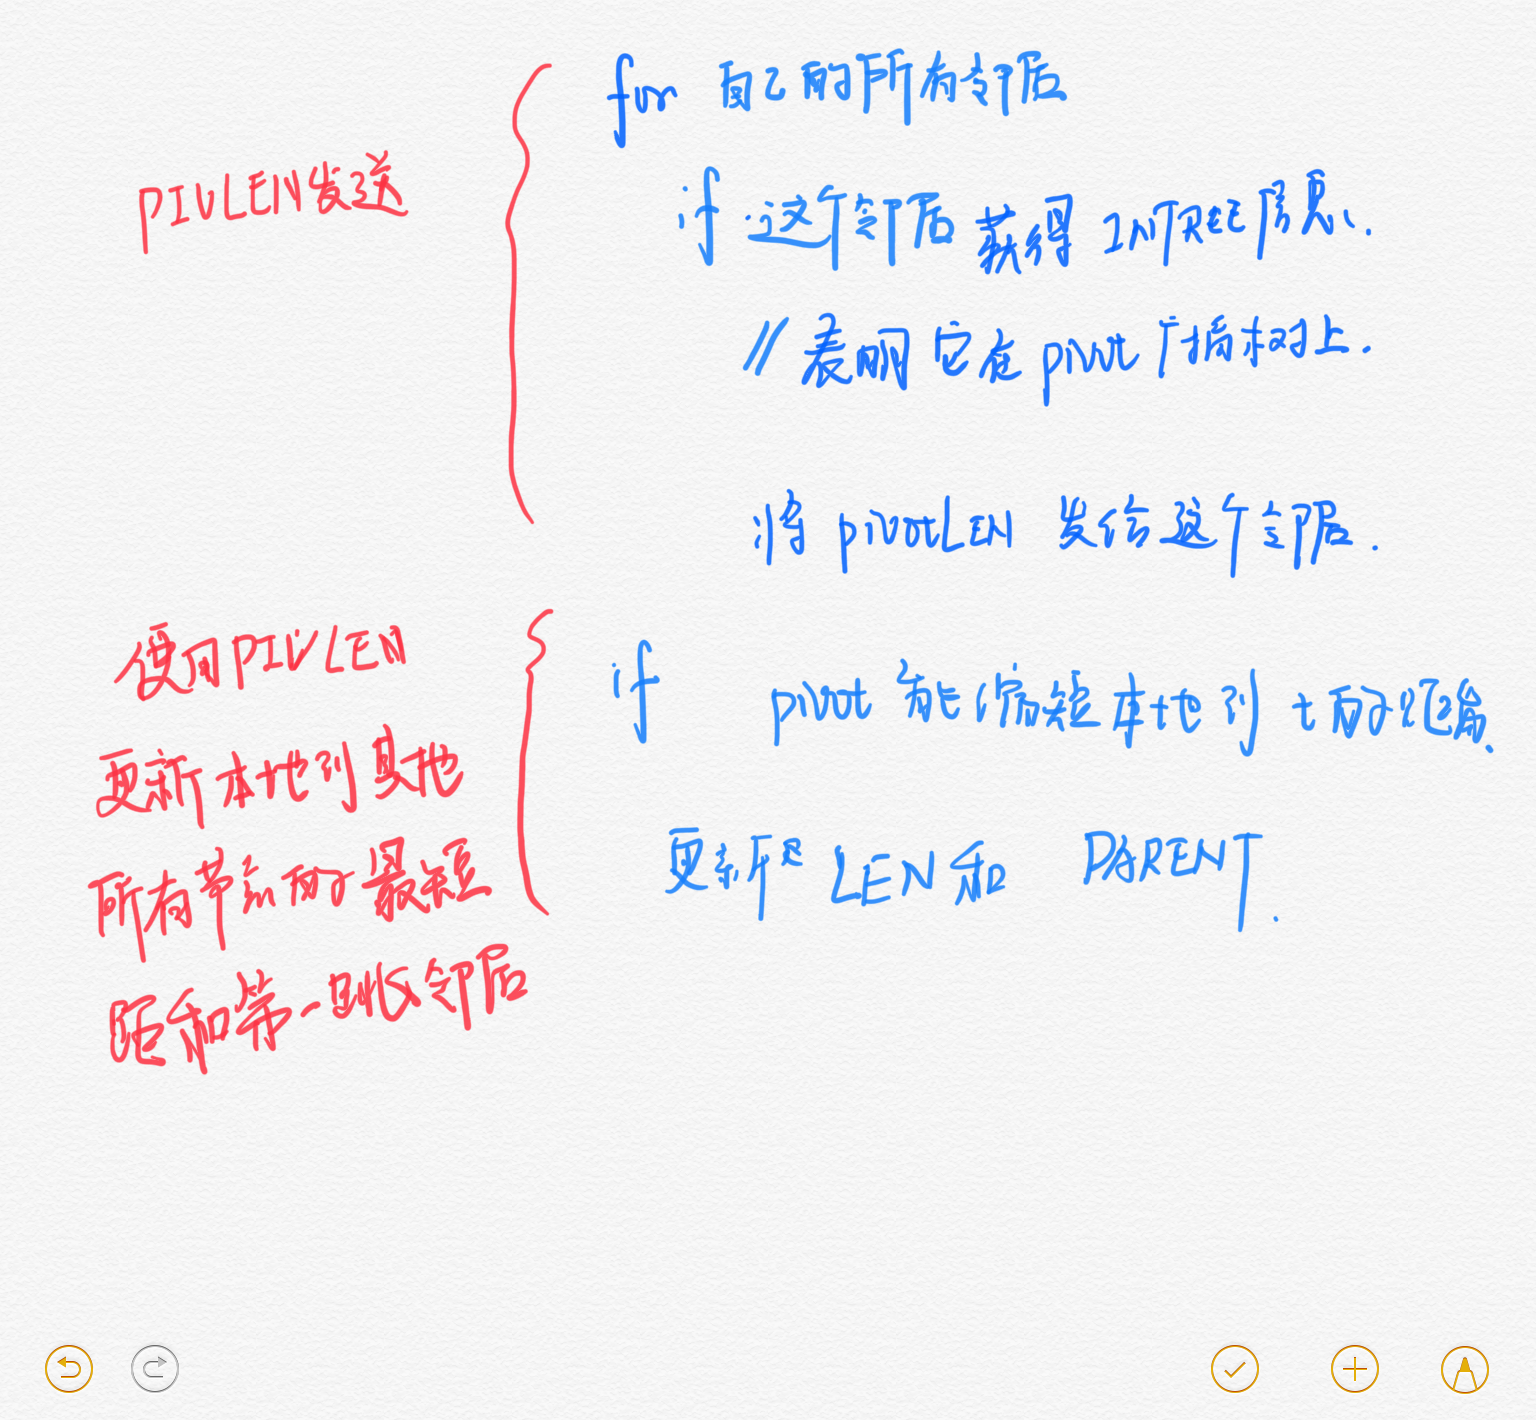 for 自己的所有邻居
PIVLEN发送
if 这个邻居 获得 INTREE信息.
// 表明它在 pivot 广播树上.
将 pivotLEN 发给这个邻居.
使用PIVLEN
更新本地到其他
所有节点的最短
距和第一跳邻居
if pivot 能缩短本地到 t 的距离.
更新 LEN和 PARENT.